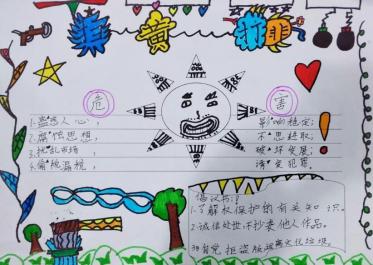 扫黄打非
危 害
1.蛊惑人心, 影响稳定;
2.腐蚀思想, 不思进取;
3.扰乱市场, 破坏发展;
4.偷税漏税, 诱发犯罪。
倡议书:
1.了解版权保护的有关知识。
2.诚信处世不抄袭他人作品。
3.自觉拒盗版远离文化垃圾。